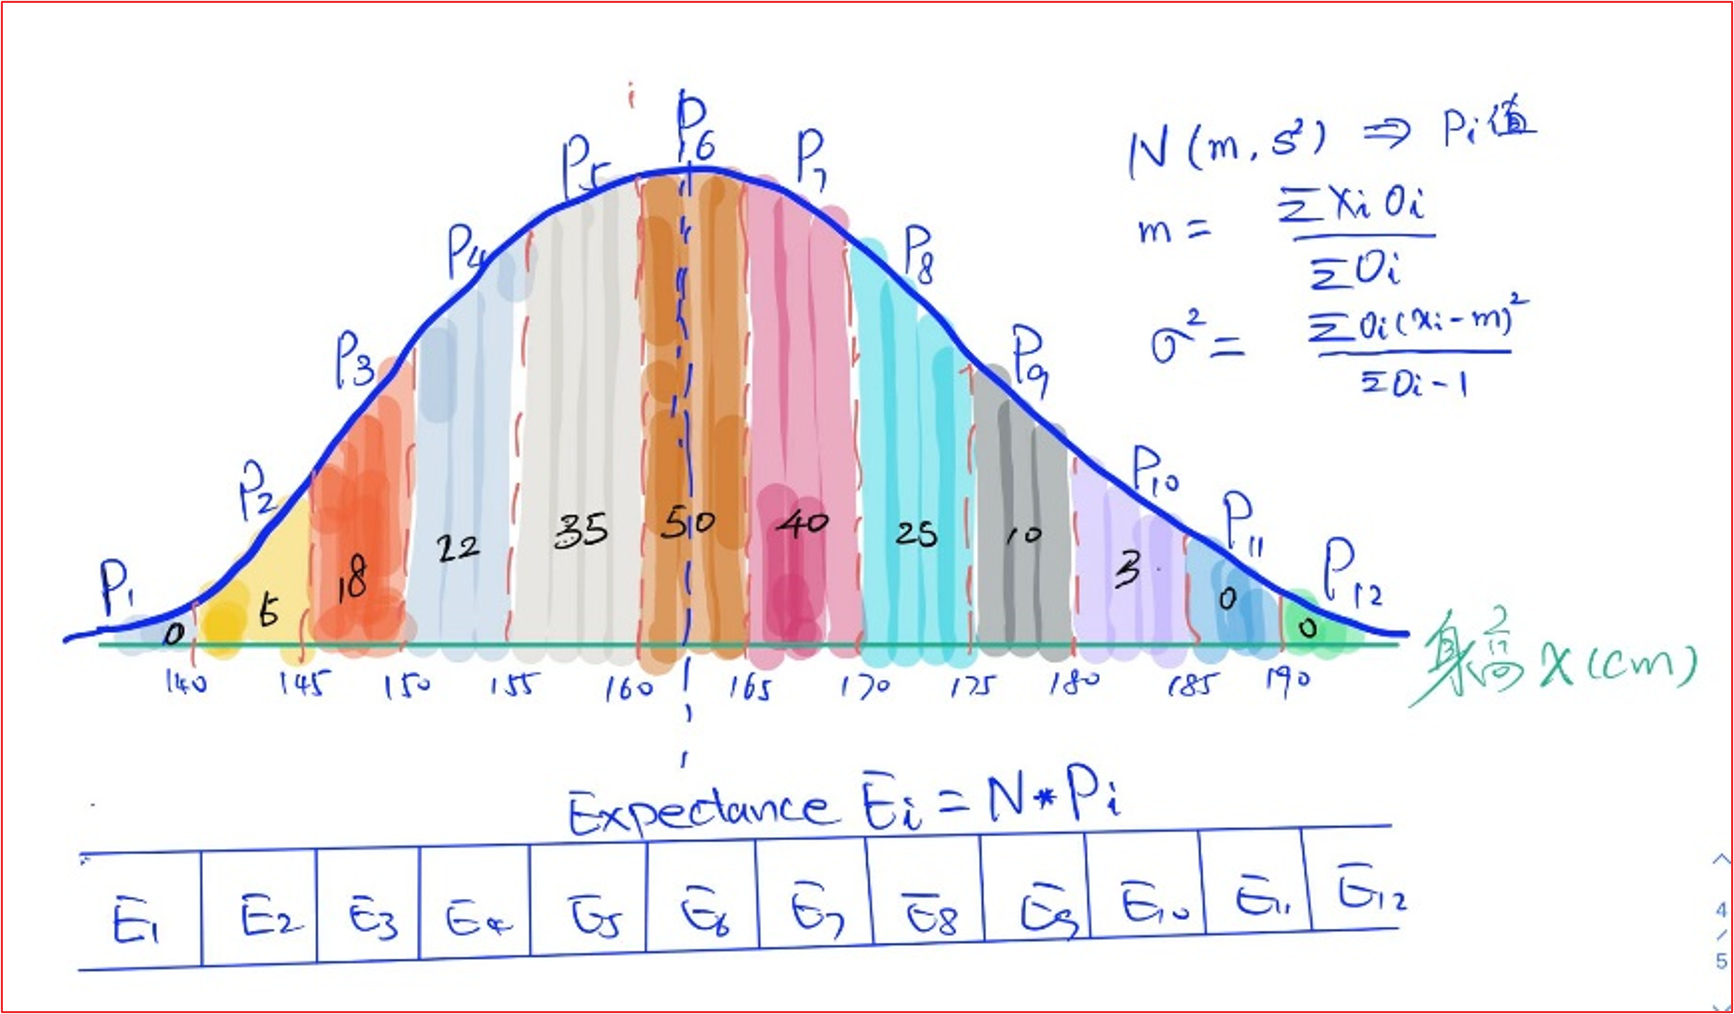 i
P1 P2 P3 P4 P5 P6 P7 P8 P9 P10 P11 P12
N(m, s²) ⇒ Pi值
m = ΣXiOi / ΣOi
σ² = ΣOi(xi-m)² / ΣOi-1
0 5 18 22 35 50 40 25 10 3 0 0
140 145 150 155 160 165 170 175 180 185 190
身高 X(cm)
Expectance Ei = N*Pi
E1 E2 E3 E4 E5 E6 E7 E8 E9 E10 E11 E12
4/5